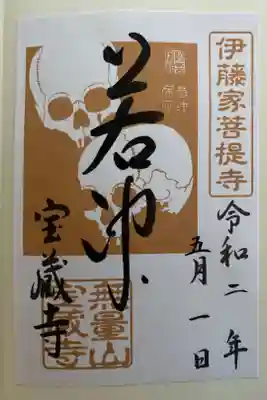 伊藤家菩提寺
令和二年
五月一日
若冲
宝蔵寺
無量山
宝蔵寺